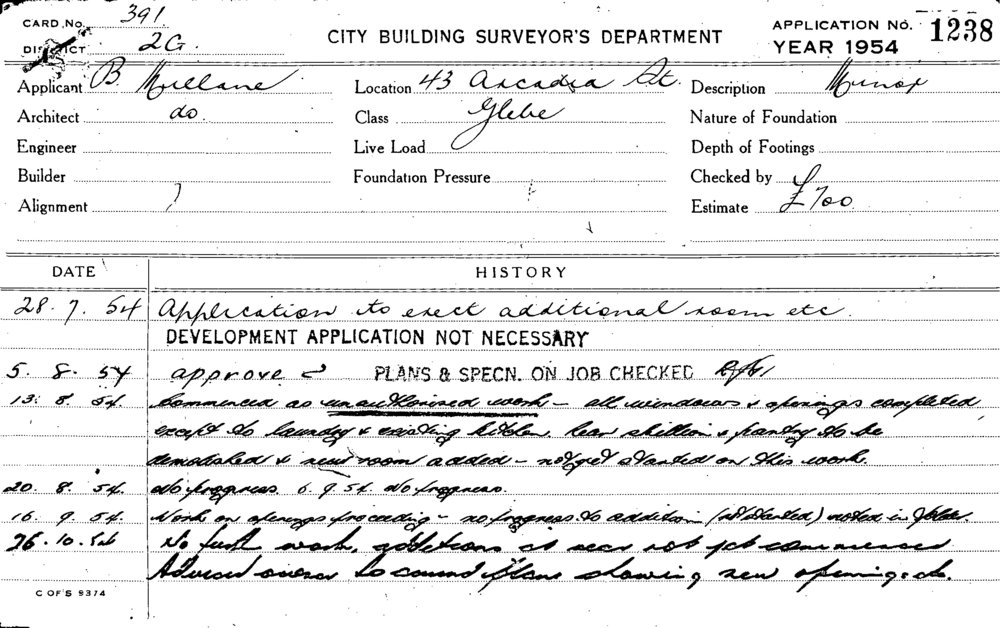 CARD NO. 391
DISTRICT 2G.
CITY BUILDING SURVEYOR'S DEPARTMENT
APPLICATION NO. 1238
YEAR 1954
Applicant B. Mullane Location 43 Arcadia St. Description Minor
Architect do. Class Glebe Nature of Foundation
Engineer Live Load Depth of Footings
Builder Foundation Pressure Checked by
Alignment Estimate £700
DATE HISTORY
28. 7. 54 Application to erect additional room etc.
DEVELOPMENT APPLICATION NOT NECESSARY
5. 8. 54 approve PLANS & SPECN. ON JOB CHECKED
13. 8. 54. Commenced as unauthorised work - all windows & openings completed
except to laundry & existing kitchen. Rear skillion & pantry to be
demolished & new room added - not yet started on this work.
20. 8. 54. No progress. 6. 9. 54. No progress.
16. 9. 54. Work on openings proceeding - no progress to addition (not started) noted in folder.
26. 10. 54 No further work, additions at rear not yet commenced
Advised owner to amend plans showing new openings etc.
C OF S 9374